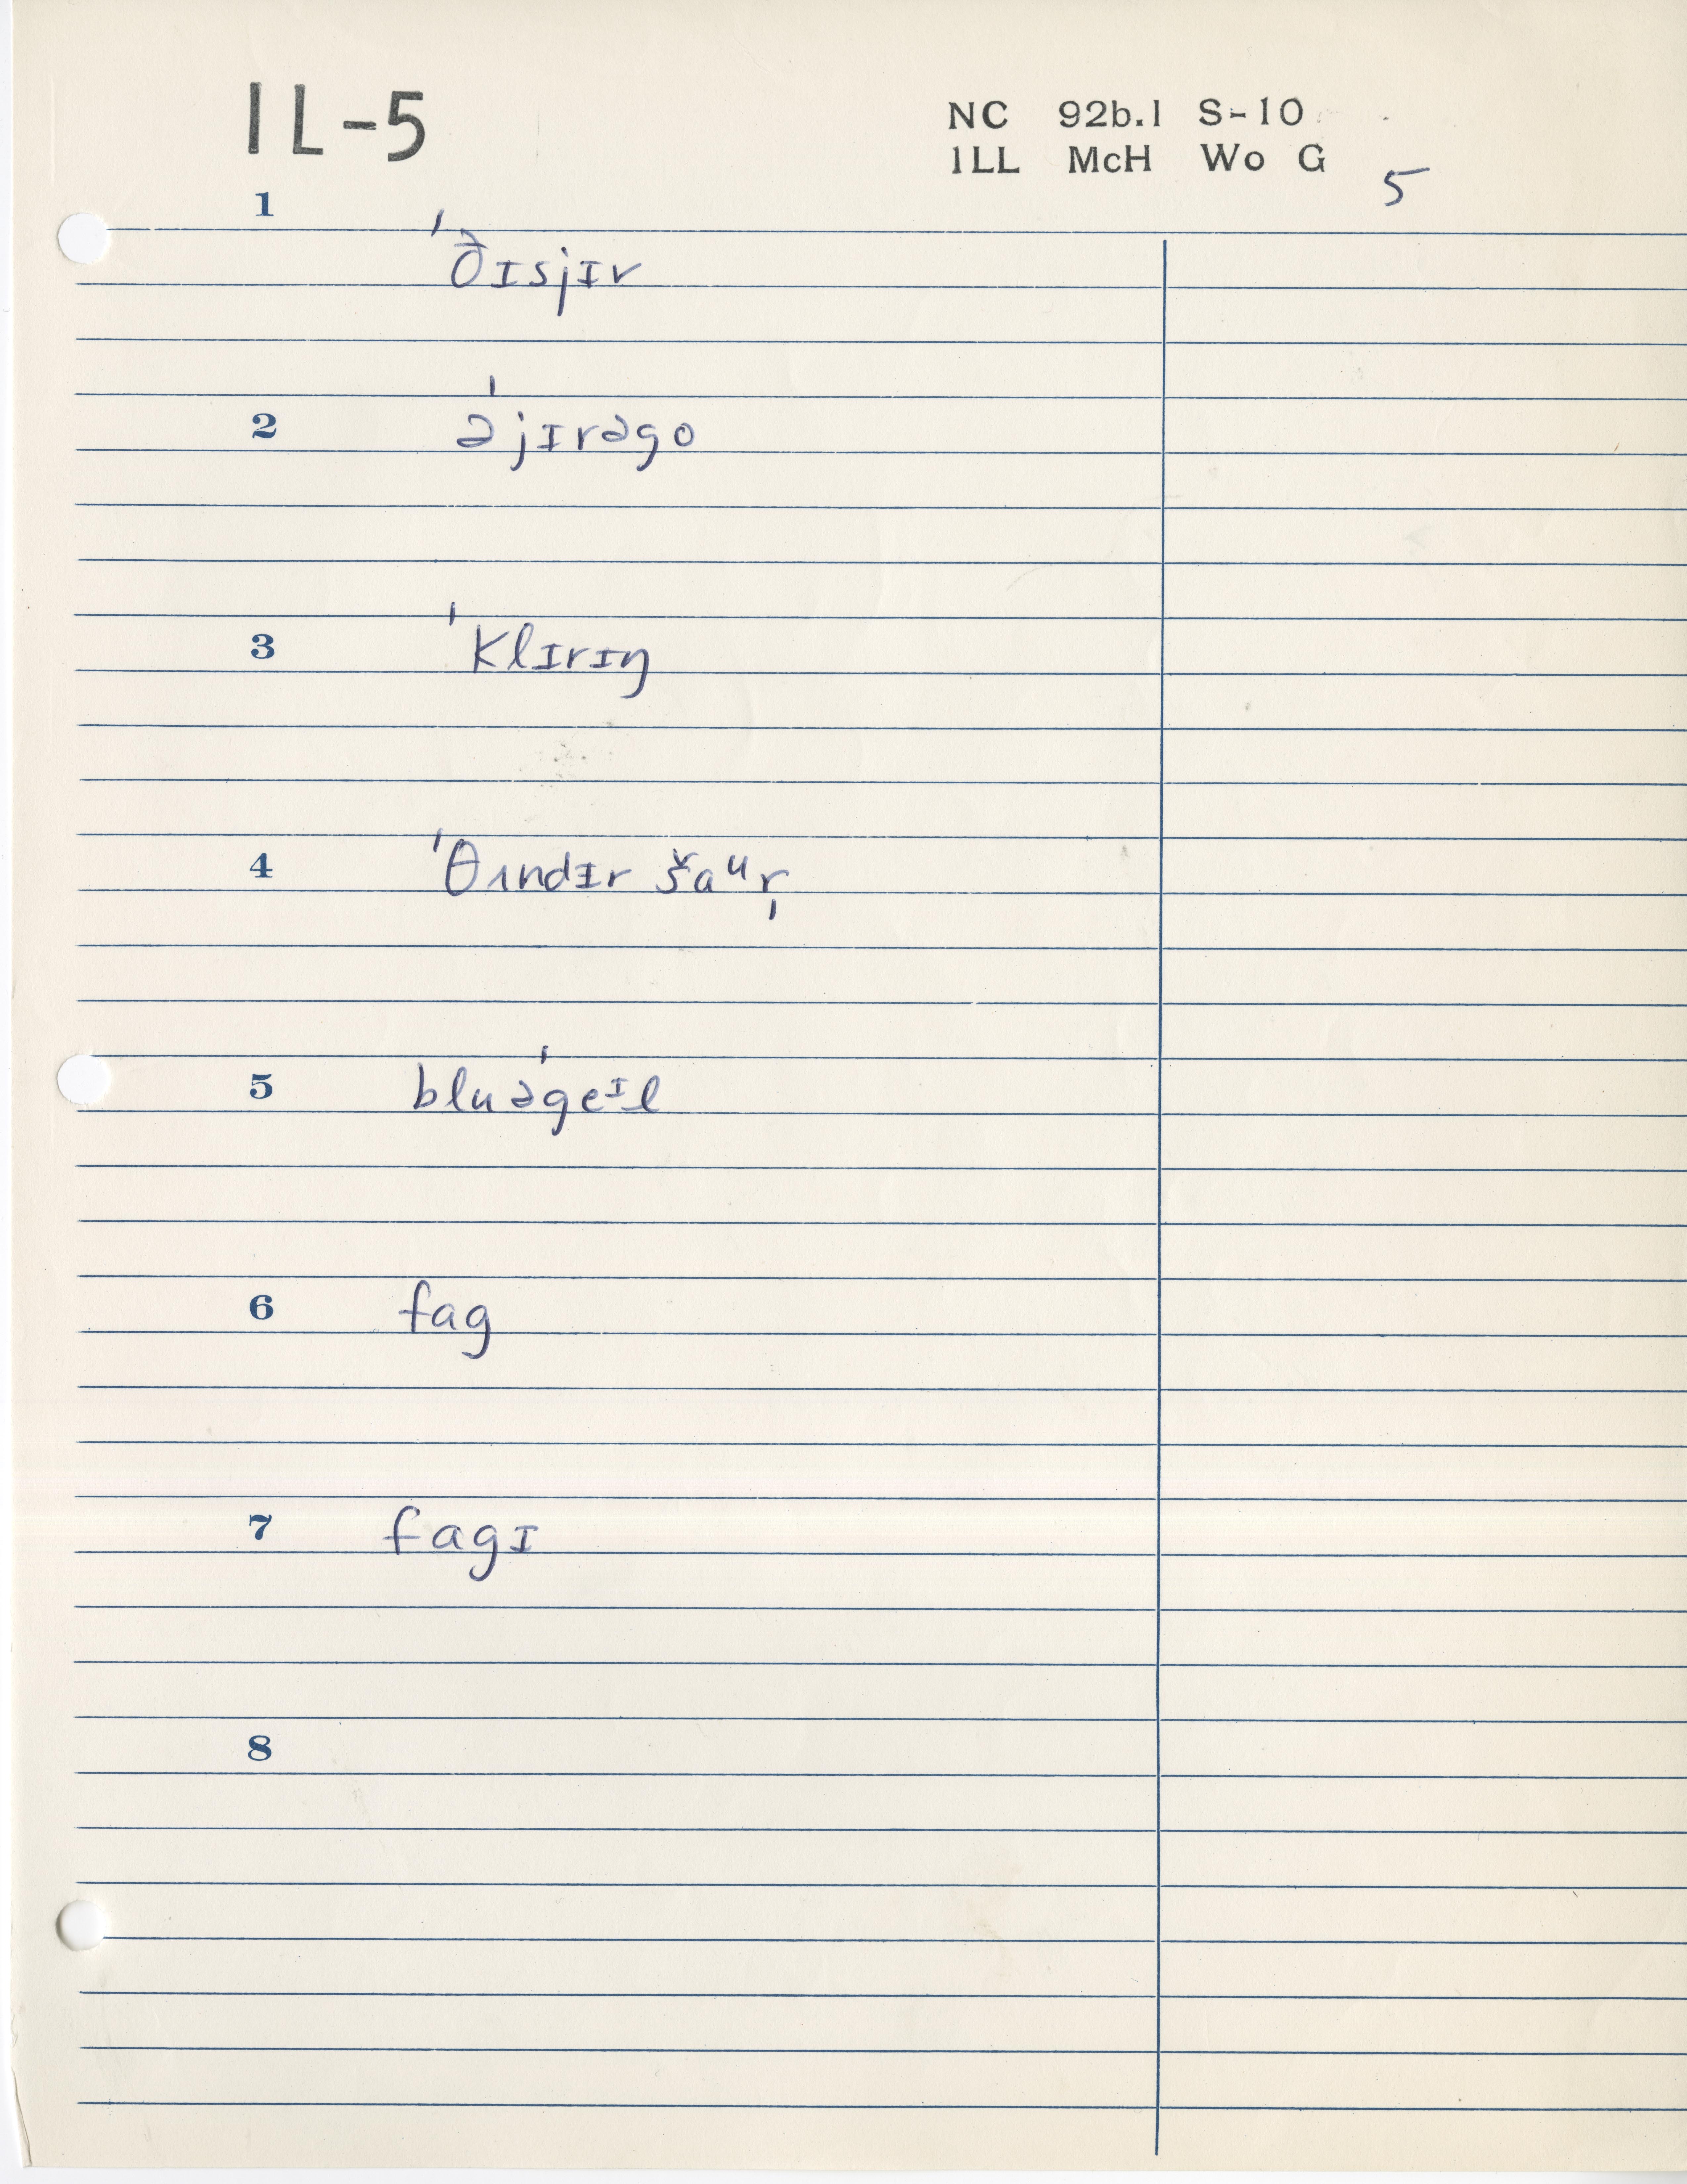 IL-5
NC 92b.1 S-10
ILL McH Wo G
5
1 ˈðɪsjɪr
2 əˈjɪrəgo
3 ˈklɪrɪŋ
4 ˈθʌndɪr šaᵘr̩
5 bluəˈgeᶦl
6 fag
7 fagɪ
8